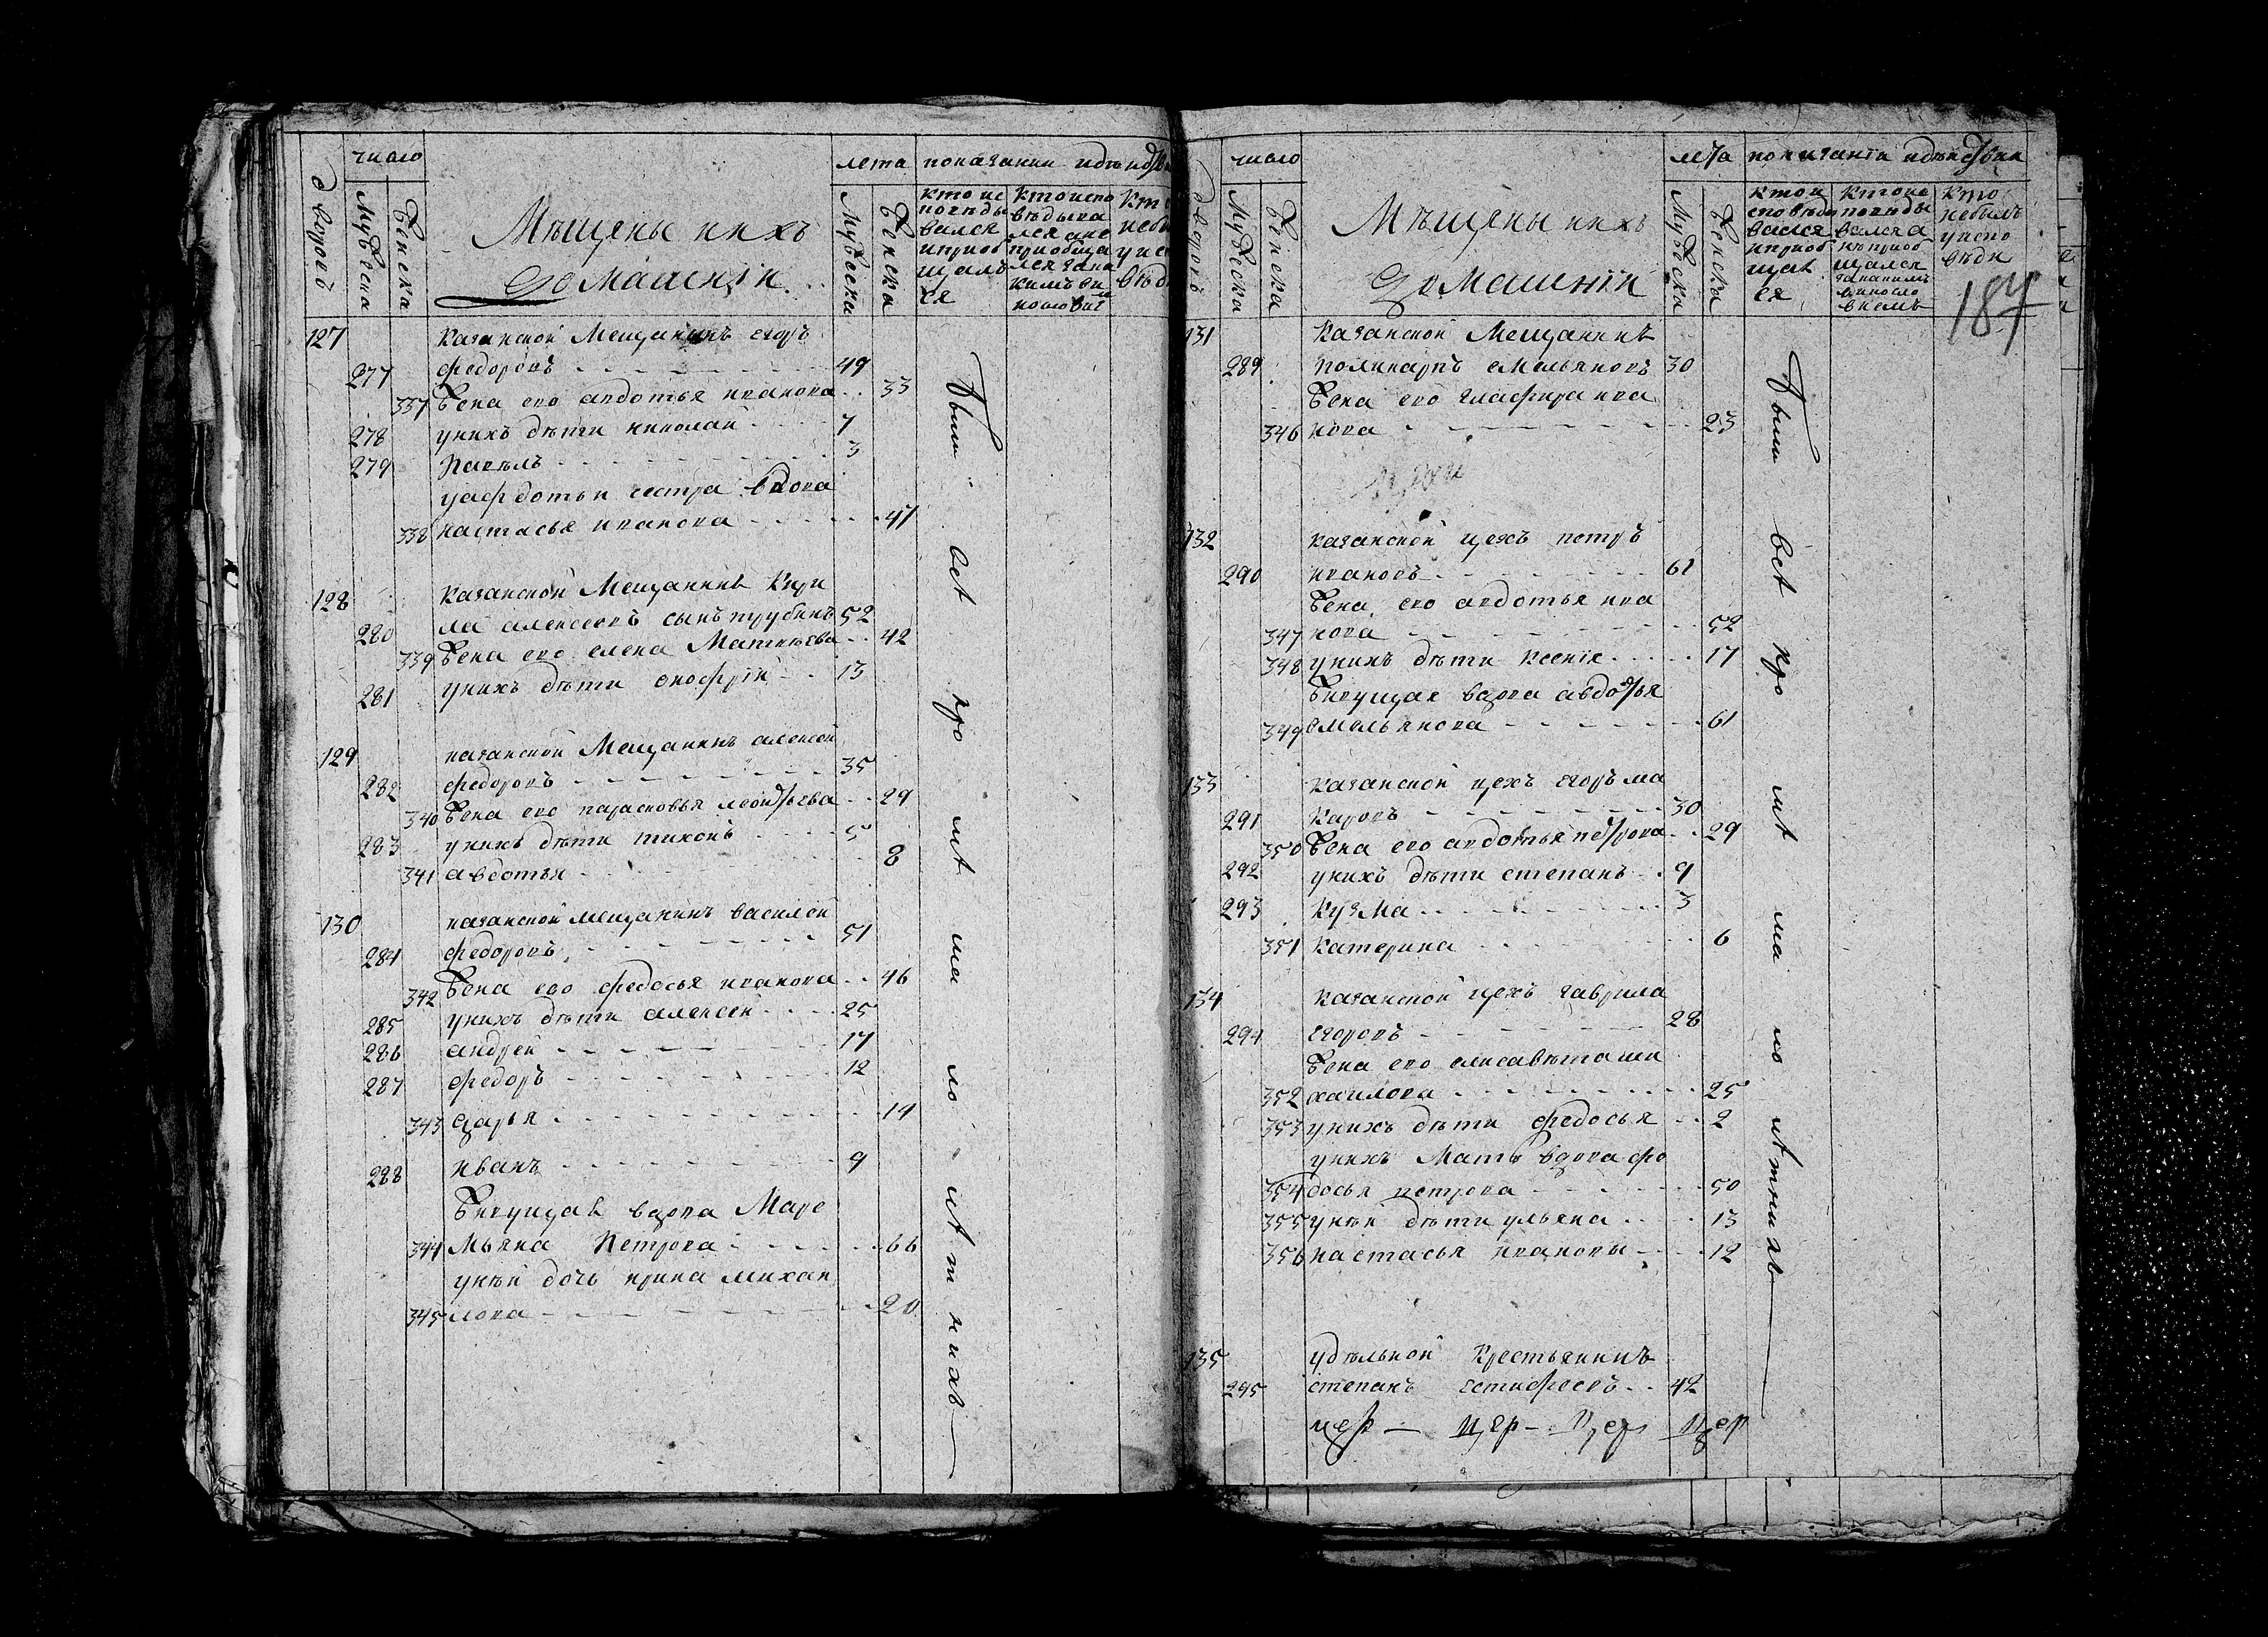 дворовъ
число
мужеска
женска
Мѣщены ихъ
Домашнїи
лета
мужеска
женска
показании
кто ис
поведы
вался
иприоб
щал
ся
кто испо
ведыва
лся а не
приобща
лся
127
Казанской Мещанинъ егоръ
277 федоровъ 49
337 жена его авдотья иванова 33
278 унихъ дѣти николаи 7
279 Павелъ 3
уафдотьи сестра вдова
338 настасья иванова 47
128
Казанской Мещанинъ Кири
280 ла алексеевъ сынъ трубинъ 52
339 жена его елена Матвѣева 42
281 унихъ дѣти онофрїи 13
129
казанской Мещанинъ алексеи
282 федоровъ 35
340 жена его парасковья леонтьева 29
283 унихъ дѣти тихонъ 5
341 авдотья 8
130
казанской мещанинъ василеи
284 федоровъ 51
342 жена его федосья иванова 46
285 унихъ дѣти алексеи 25
286 андреи 17
287 федоръ 12
343 дарья 14
288 иванъ 9
живущая вдова Маре
344 мьяна Петрова 66
унѣи дочь ирина михаи
345 лова 20
были все кро ме ма ло лет нихъ
дворовъ
число
мужеска
женска
Мѣщены ихъ
Домашнїи
лета
мужеска
женска
показанїи
кто и
споведы
вался
иприоб
щал
ся
кто ис
поведы
вался а
неприоб
щался
кто
небылъ
уиспо
вѣди
187
131
Казанской Мещанинъ
289 поликарпъ емельяновъ 30
жена его глафира ива
346 нова 23
132
казанской цехъ петръ
290 ивановъ 61
жена его авдотья ива
347 нова 52
348 унихъ дѣти ксенїя 17
живущая вдова авдотья
349 емельянова 61
133
казанской цехъ егоръ ма
291 каровъ 30
350 жена его авдотья петрова 29
292 унихъ дѣти степанъ 9
293 кузма 3
351 катерина 6
134
казанской цехъ гаврила
294 егоровъ 28
жена его елисавѣта ми
352 хаилова 25
353 унихъ дѣти федосья 2
унихъ Мать вдова фе
354 досья петрова 50
355 унѣи дѣти ульяна 13
356 настасья ивановы 12
135
удѣльной крестьянинъ
295 степанъ естифеевъ 42
были все кро ме ма ло летнихъ